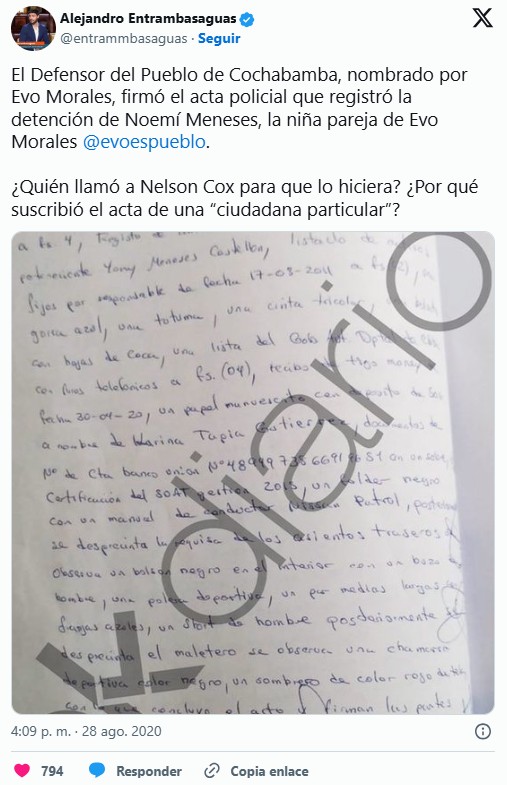 Alejandro Entrambasaguas
@entrammbasaguas · Seguir
X
El Defensor del Pueblo de Cochabamba, nombrado por
Evo Morales, firmó el acta policial que registró la
detención de Noemí Meneses, la niña pareja de Evo
Morales @evoespueblo.
¿Quién llamó a Nelson Cox para que lo hiciera? ¿Por qué
suscribió el acta de una “ciudadana particular”?
a fs. 4, Registo de
Meneses Castellon, listado de
fijos por responsable de fecha 17-03-2011 a fs.
gorra azol, una totuma, una cinta tricolor,
con hojas de Coca, una lista del Gob.
con telefonicos a fs. (04), recibo de trigo
fecha 30-04-20, un papel manuescrito con deposito de
a nombre de Marina Tapia Gutierrez, documentos de
No de Cta banco union
Certificación del SOAT gestion 2015, un folder negro
con un manual de conductor Nissan Patrol,
se desprecinta la requisa de los asientos traseros
Observa un bolson negro en el interior con un buzo
hombre, una polera deportiva, un par medias largas
franjas azoles, un short de hombre posdoriomente
desprecinta el maletero se observa una chamarra
deportiva color negro, un sombrero de color rojo
con lo que concluye el acto y firman las partes
diario
4:09 p. m. · 28 ago. 2020
794 Responder Copia enlace